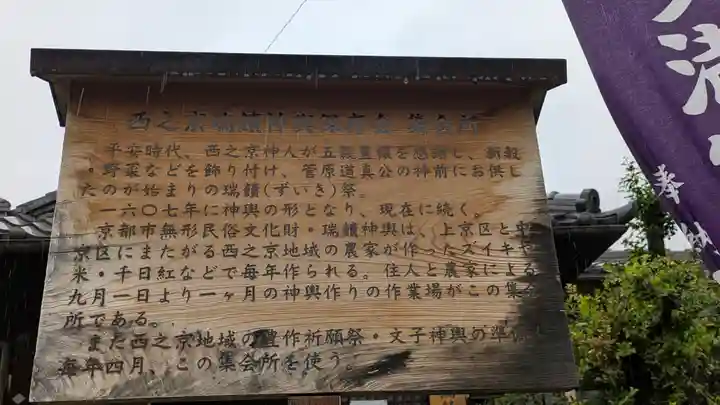 西之京瑞饋神輿保存会 集会所
平安時代、西之京神人が五穀豊穣を感謝し、新穀
・野菜などを飾り付け、菅原道真公の神前にお供し
たのが始まりの瑞饋(ずいき)祭。
一六〇七年に神輿の形となり、現在に続く。
京都市無形民俗文化財・瑞饋神輿は、上京区と中
京区にまたがる西之京地域の農家が作ったズイキや
米・千日紅などで毎年作られる。住人と農家による
九月一日より一ヶ月の神輿作りの作業場がこの集会
所である。
また西之京地域の豊作祈願祭・文子神輿の準備
毎年四月、この集会所を使う。
奉